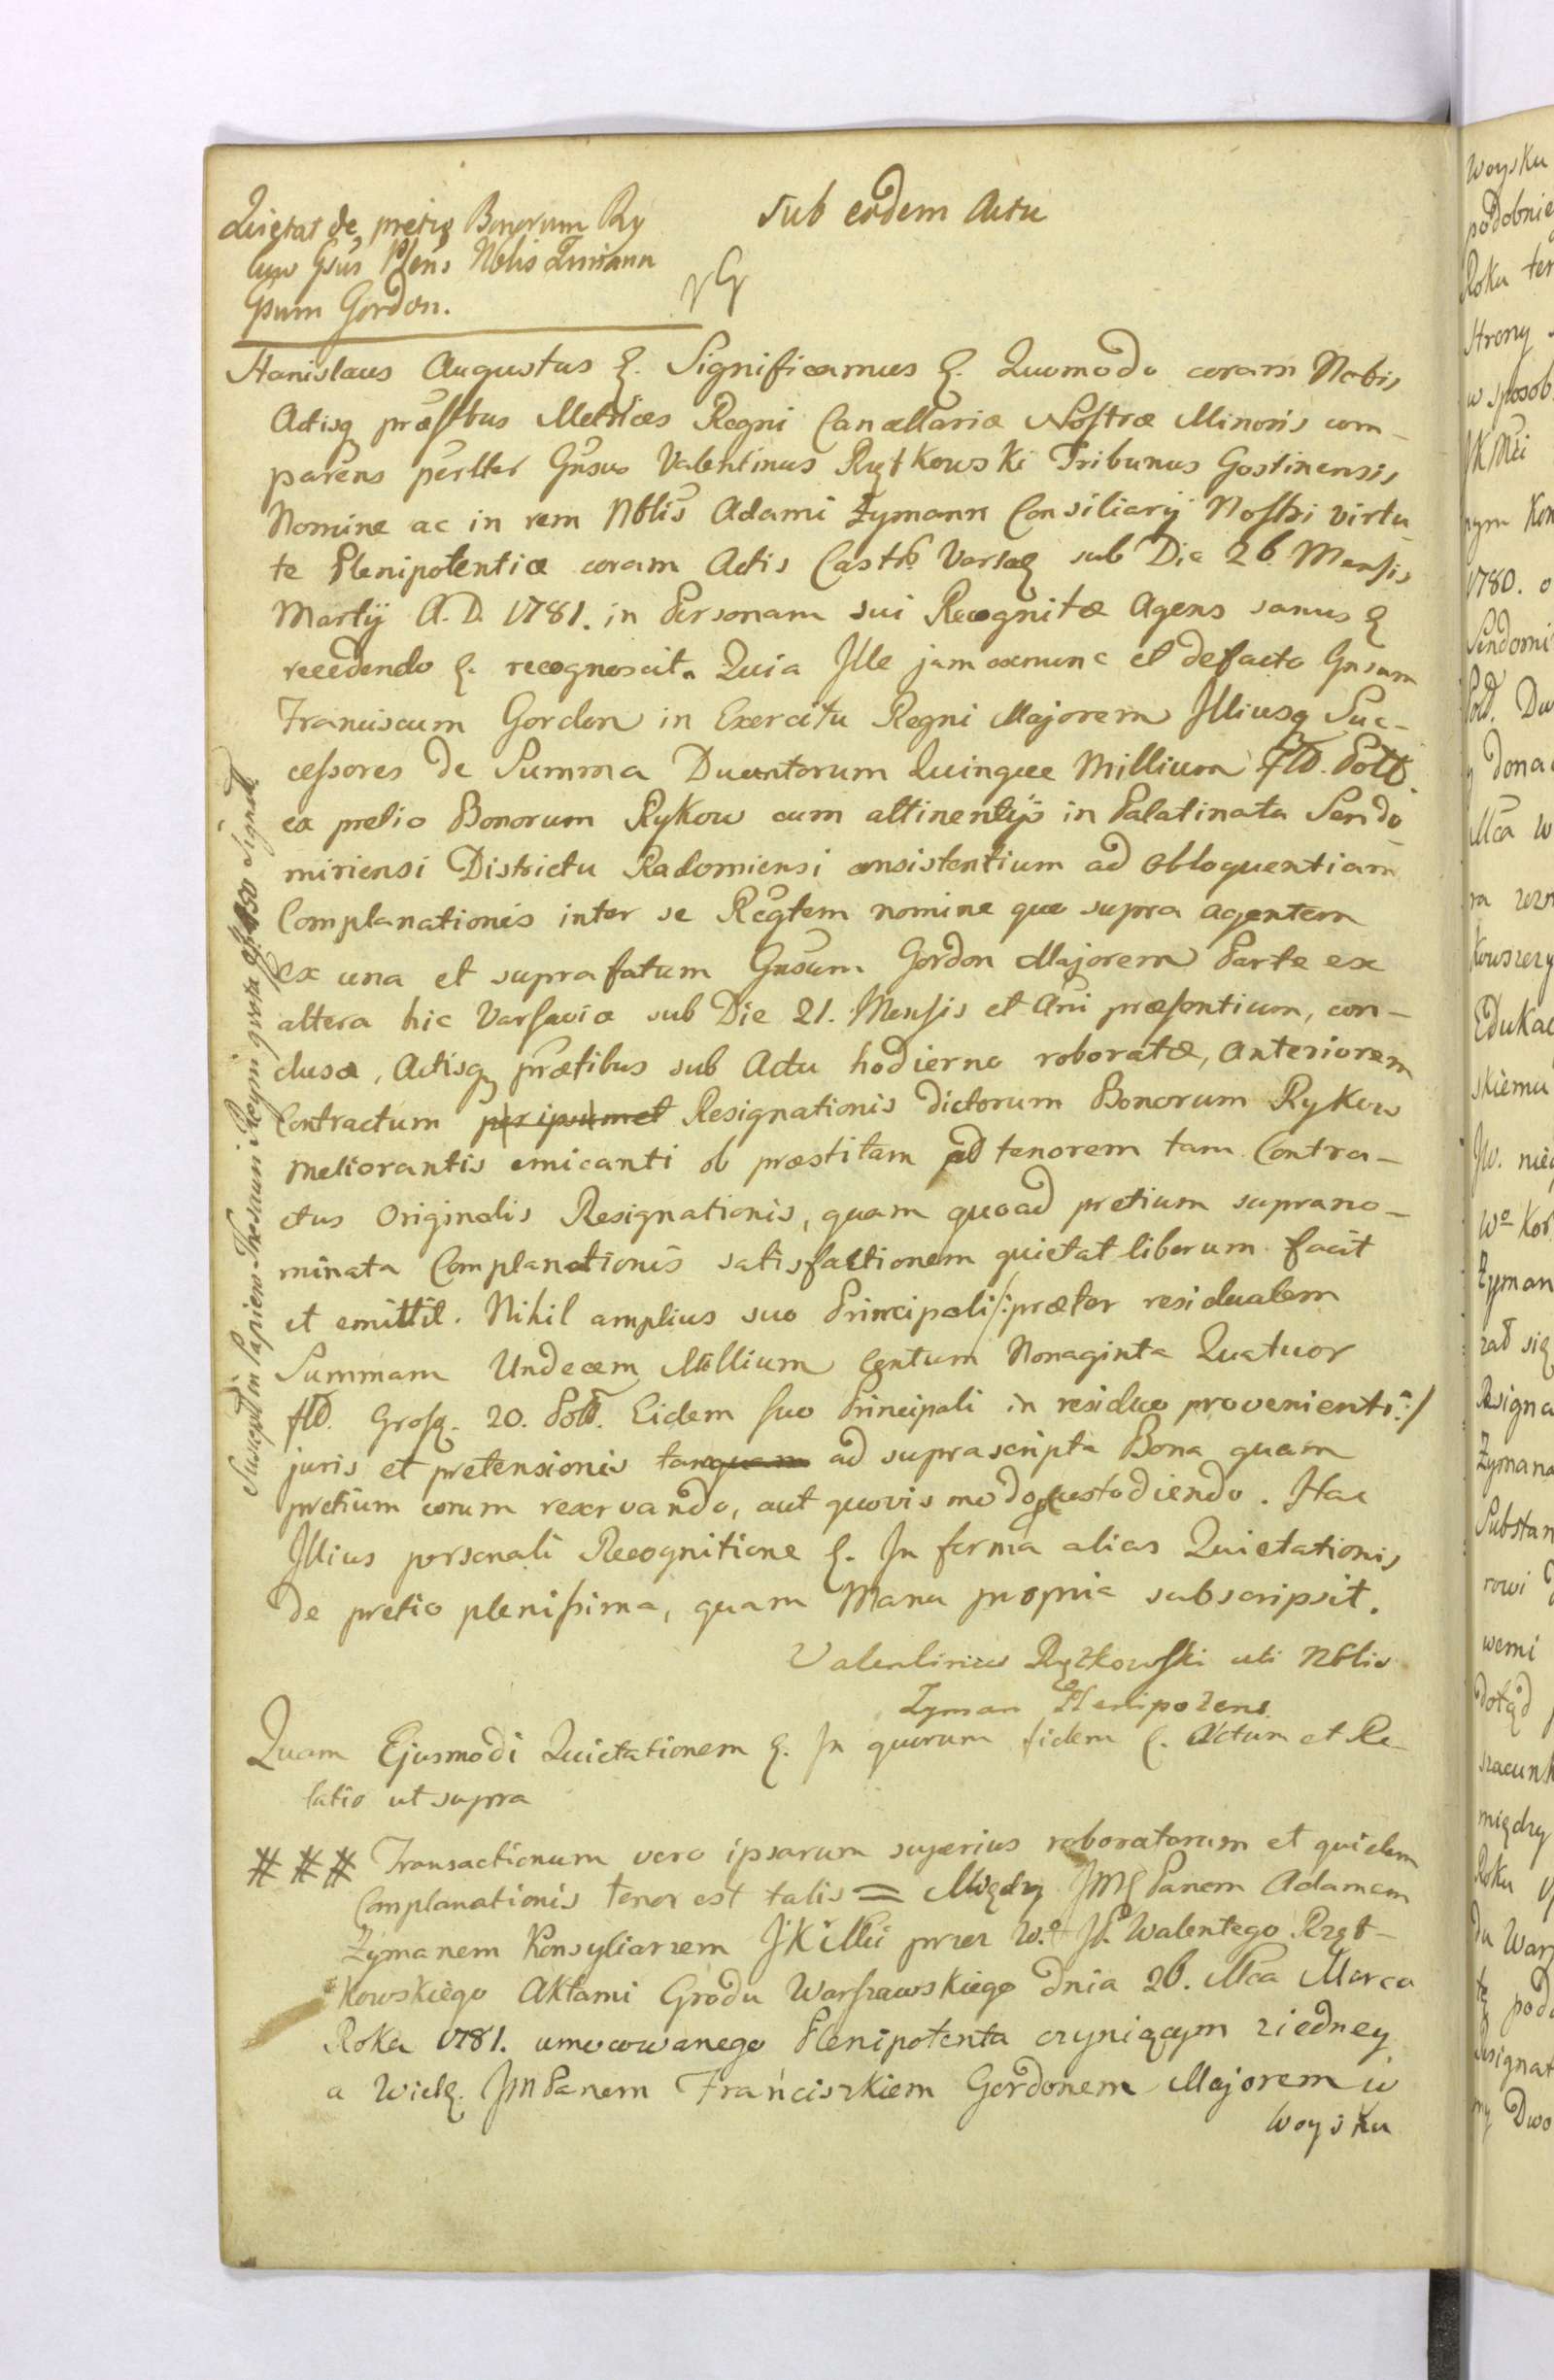 Quietat de pretio Bonorum Ry
kow Gsus Plens Nblis Zimann
Gsum Gordon.
Sub eodem Actu
Stanislaus Augustus &. Significamus &. Quomodo coram Nobis
Actisq præsstbus Metrices Regni Cancellariæ Nostræ Minoris com-
parens perllter Gnsus Valentinus Rytkowski Tribunus Gostinensis
Nomine ac in rem Nblis Adami Zymann Consiliarij Nostri virtu-
te Plenipotentiæ coram Actis Castrb Varsae sub Die 26 Mensis
Martij A. D. 1781. in Personam sui Recognitæ Agens sanus &
recedendo &. recognoscit. Quia Ille jam exnunc et defacto Gnsum
Franciscum Gordon in Exercitu Regni Majorem Illiusq Suc-
cessores de Summa Ducentorum Quinque Millium flt. Poll.
ex pretio Bonorum Rykow cum attinentijs in Palatinatu Sendo-
miriensi Districtu Radomiensi consistentium ad obloquentiam
Complanationis inter se Regtem nomine quo supra agentem
ex una et suprafatum Gnsum Gordon Majorem Parte ex
altera hic Varsaviæ sub Die 21. Mensis et Ani præsentium, con-
clusæ, Actisq prætibus sub Actu hodierno roboratæ, anteriorem
Contractum per ipsummet Resignationis dictorum Bonorum Rykow
meliorantis emicanti ob præstitam ad tenorem tam Contra-
ctus Originalis Resignationis, quam quoad pretium suprano-
minata Complanationis satisfactionem quietat liberum facit
et emittit. Nihil amplius suo Principali /: præter residualem
Summam Undecem Millium Centum Nonaginta Quatuor
flt. Grosq. 20. Poll. Eidem suo Principali in residuo provenienti :/
juris et pretensionis tanquam ad suprascripta Bona quam
pretium eorum reservando, aut quovis modo custodiendo. Hac
Illius personali Recognitione &. In forma alias Quietationis
de pretio plenissima, quam Manu propria subscripsit.
Valentinus Rytkowski uti Nblis
Zyman Plenipotens
Quam Ejusmodi Quietationem &. In quorum fidem &. Actum et Re-
latio ut supra
### Transactionum vero ipsarum superius roboratarum et quidem
Complanationis tenor est talis = Między JM& Panem Adamem
Zymanem Konsyliarzem JKMci przez W.o JP. Walentego Rzęt-
kowskiego Aktami Grodu Warszawskiego dnia 26. Mca Marca
Roku 1781. umocowanego Plenipotenta czyniącym ziedney
a Wielę. JM Panem Franciszkiem Gordonem Majorem w
Woysku